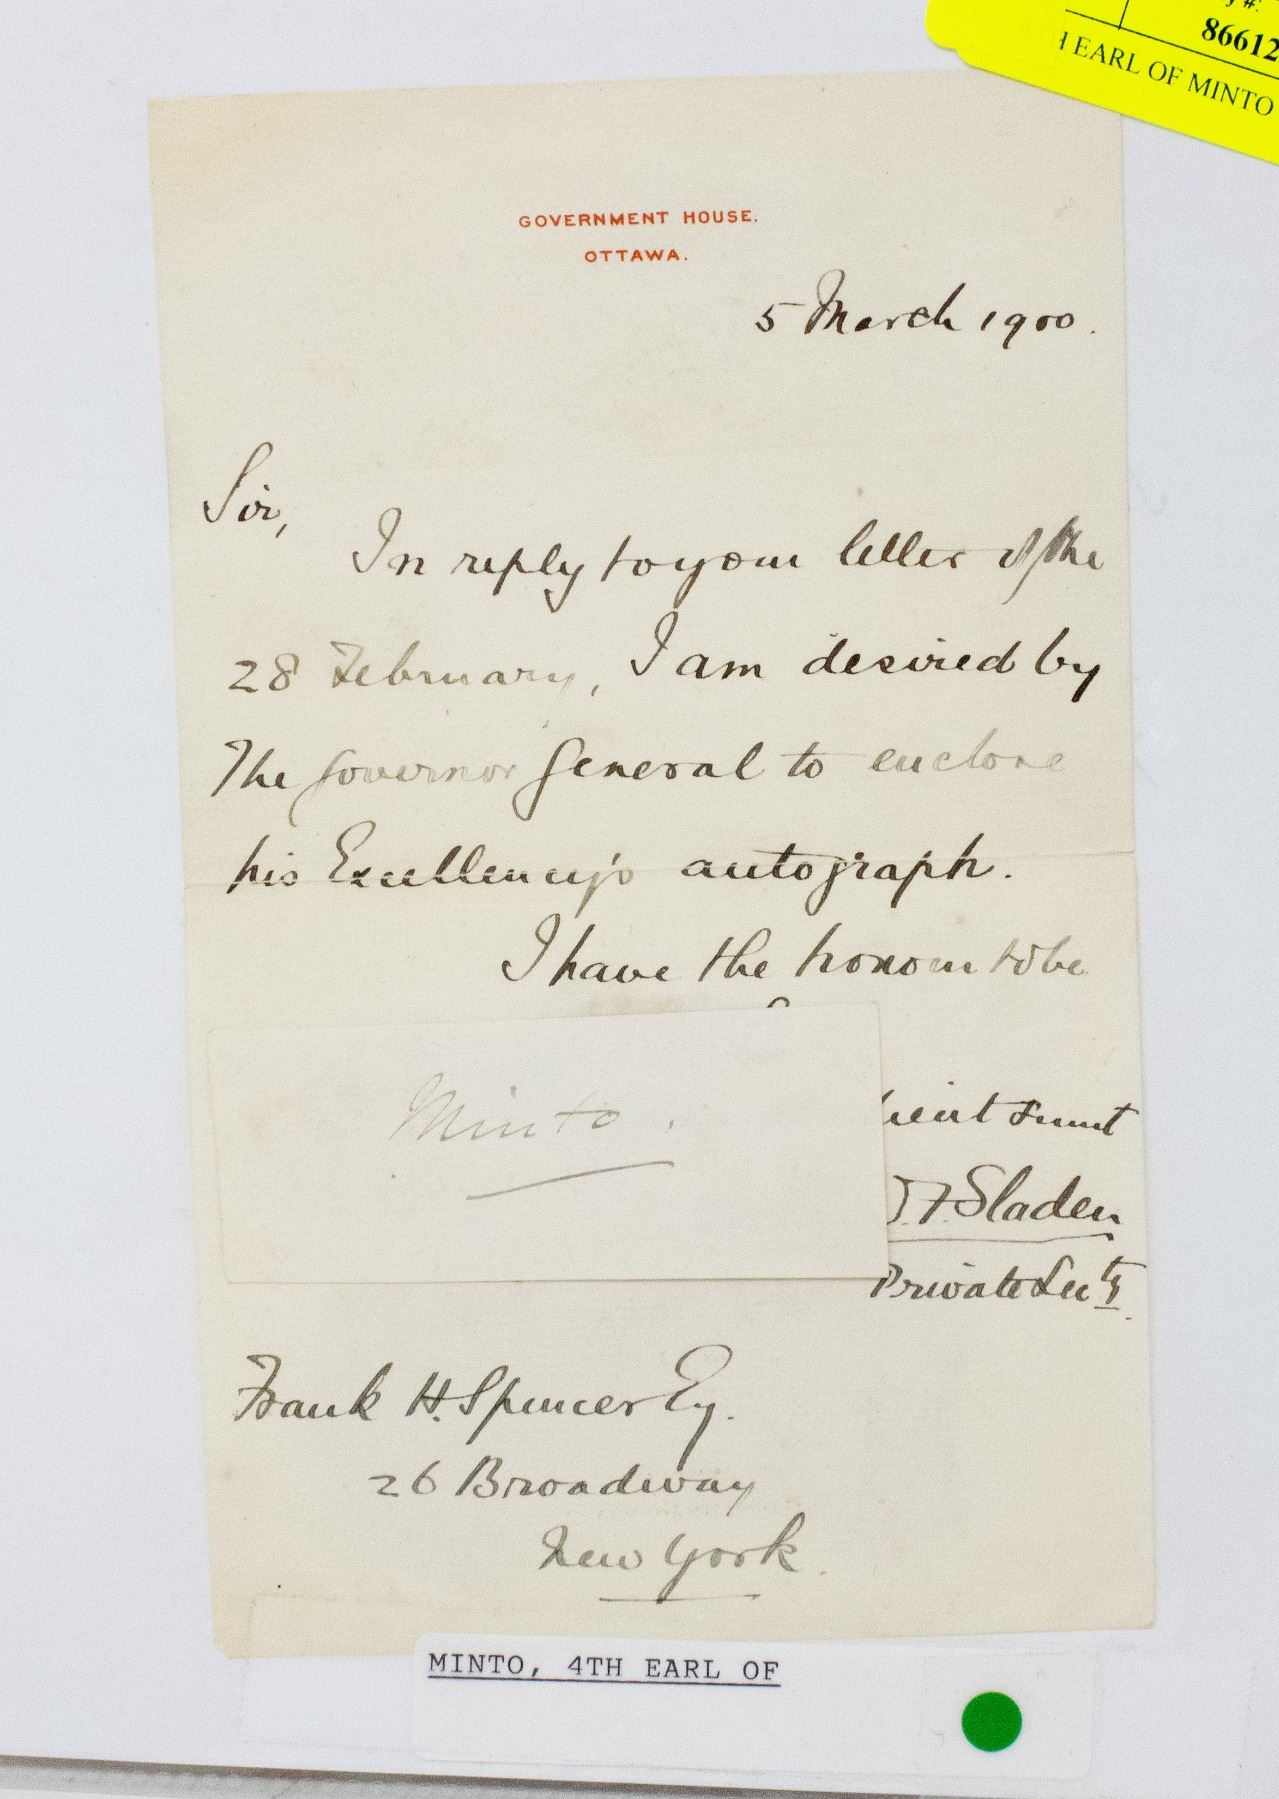 y #:
86612
H EARL OF MINTO
GOVERNMENT HOUSE.
OTTAWA.
5 March 1900.
Sir,
In reply to your letter of the
28 February, I am desired by
The Governor General to enclose
his Excellency's autograph.
I have the honour to be
Minto.
ient
J.F. Sladen
Private Secty.
Frank H. Spencer Esq.
26 Broadway
New York.
MINTO, 4TH EARL OF